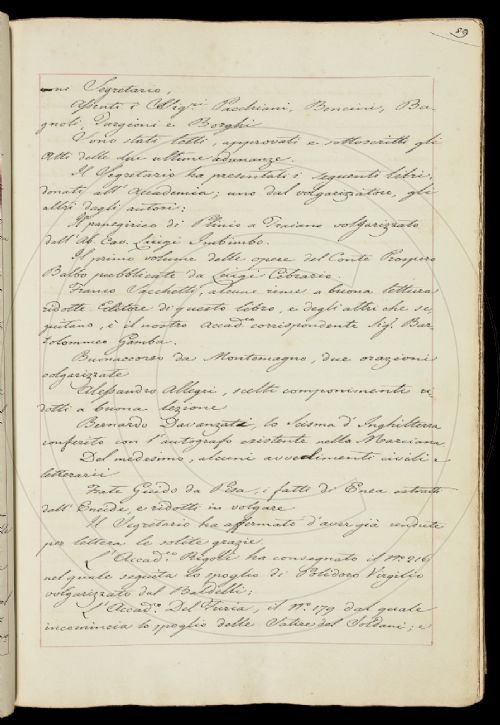 89
ni Segretario,
Assenti i Sig.ri Pacchiani, Bencini, Ba-
gnoli, Targioni e Borghi
Sono stati letti, approvati e sottoscritti gli
Atti delle due ultime adunanze.
Il Segretario ha presentati i seguenti libri,
donati all'Accademia; uno dal volgarizzatore, gli
altri dagli autori:
Il panegirico di Plinio a Traiano volgarizzato
dall'Ab. Cav. Luigi
Il primo volume delle opere del Conte Prospero
Balbo pubblicate da Luigi Cibrario.
Franco Sacchetti, alcune rime a buona lettura
ridotte. Editore di questo libro, e degli altri che se-
guitano, è il nostro Accad.co corrispondente Sig. Bar-
tolommeo Gamba.
Buonaccorso da Montemagno, due orazioni
volgarizzate
Alessandro Allegri, scelti componimenti ri-
dotti a buona lezione
Bernardo Davanzati, lo Scisma d'Inghilterra
conferito con l'autografo esistente nella Marciana
Del medesimo, alcuni avvedimenti civili e
letterarii
Frate Guido da Pisa, i fatti di Enea estratti
dall'Eneide, e ridotti in volgare
Il Segretario ha affermato d'aver già rendute
per lettera le solite grazie.
L'Accad.co Rigoli ha consegnato il N.o 216,
nel quale seguita lo spoglio di Polidoro Virgilio
volgarizzato dal Baldelli;
L'Accad.co Del Furia, il N.o 179 dal quale
incomincia lo spoglio delle Satire del Soldani; e